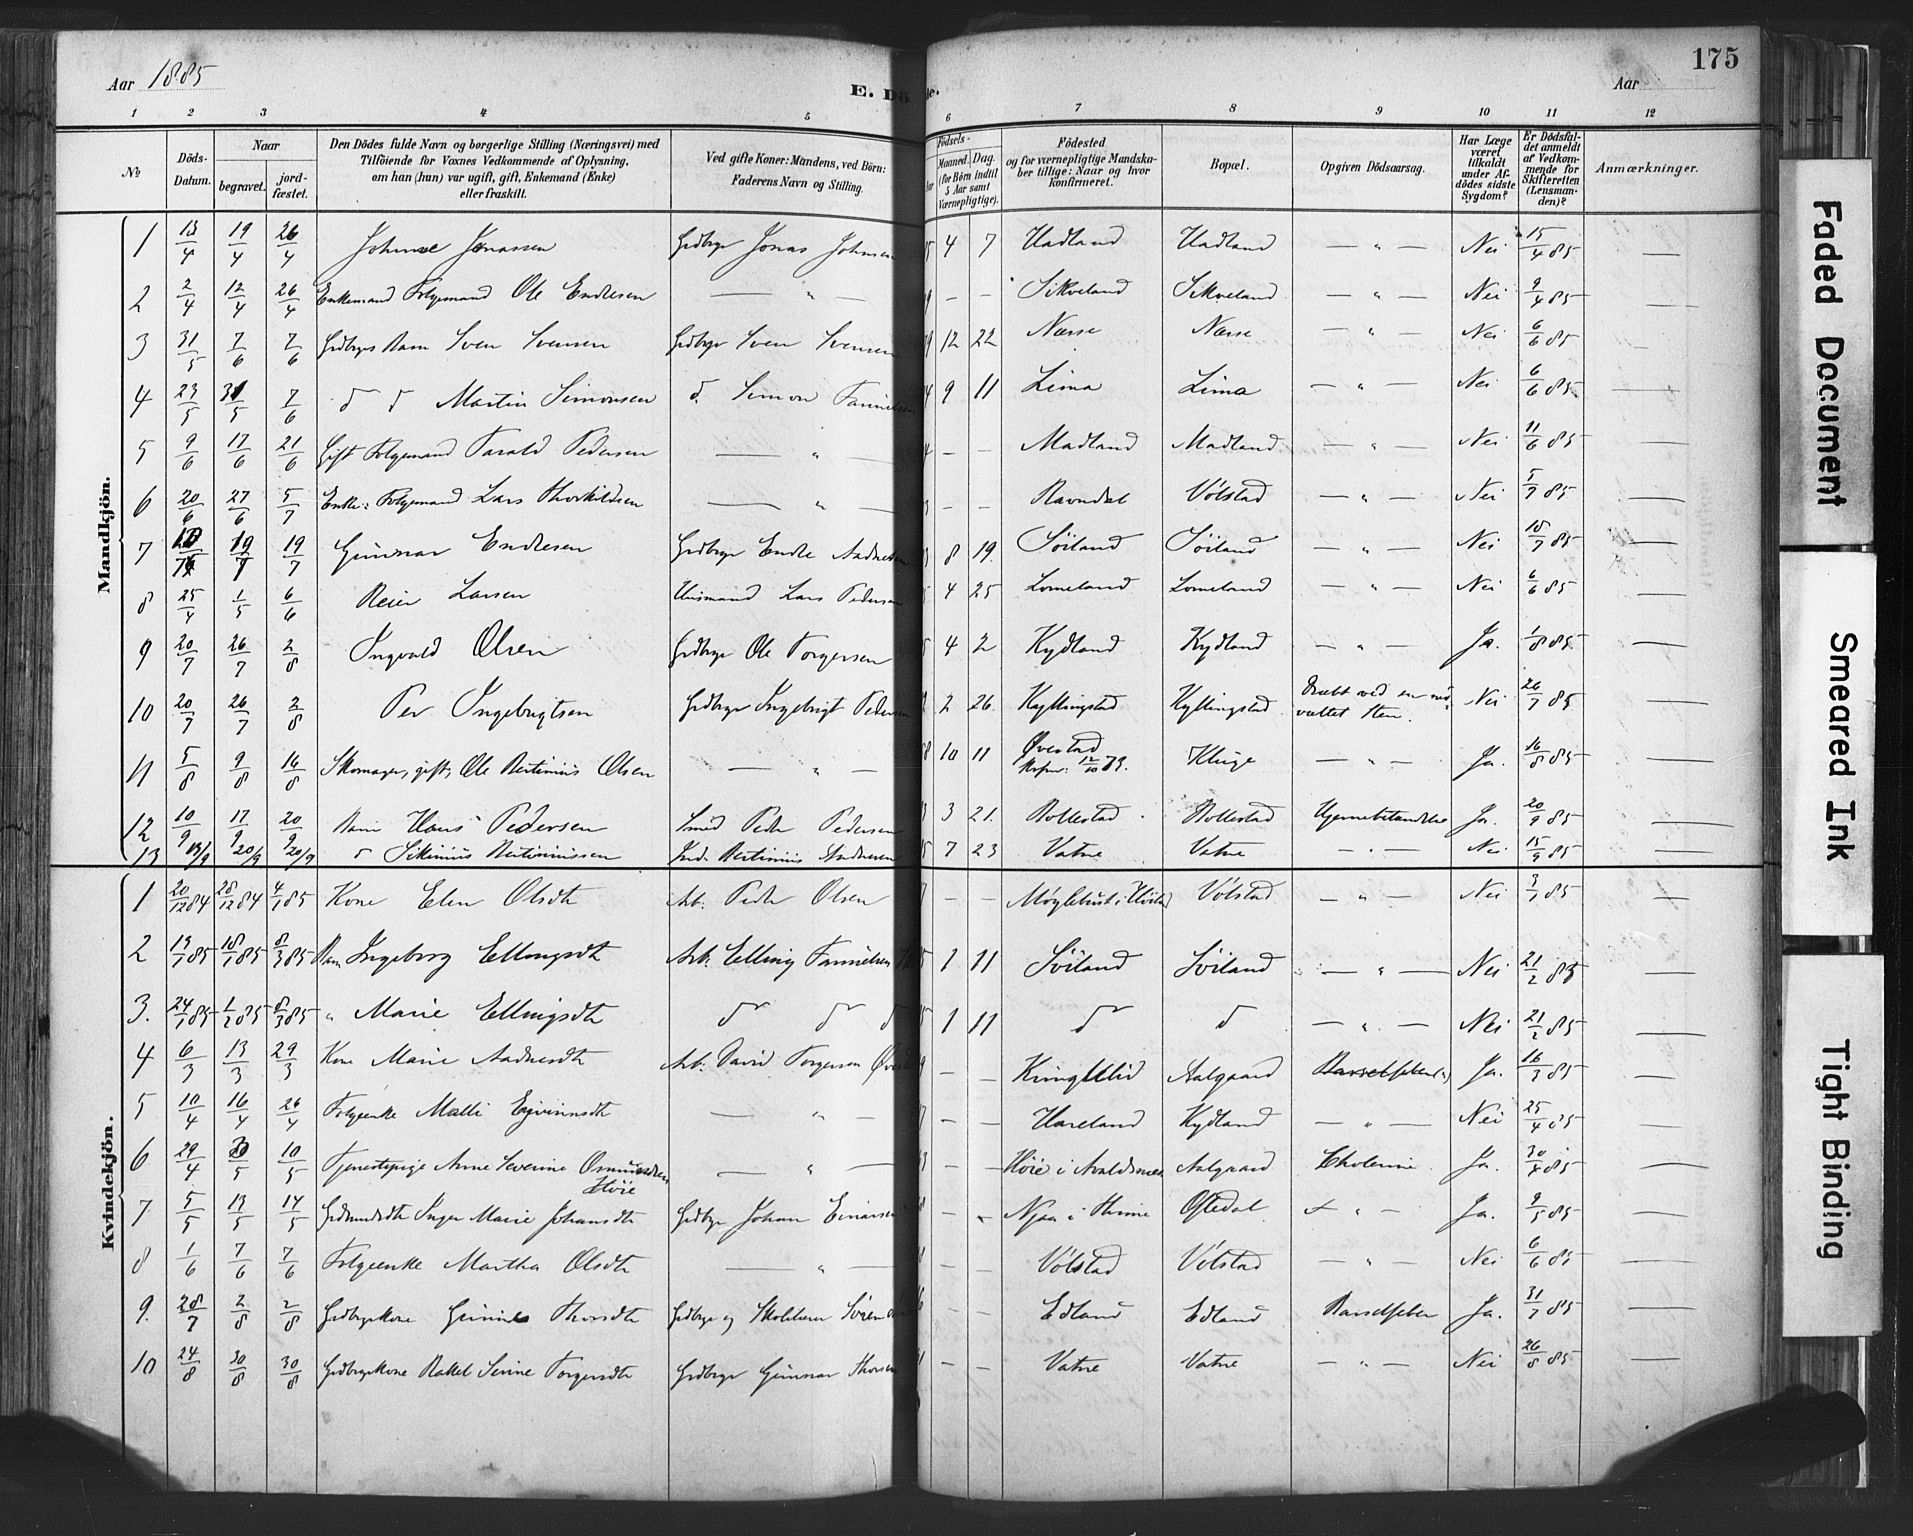 Aar 1885
E. Dö
1 2 3 4 5
№
Döds-Datum.
Naar
begravet.
jordfæstet.
Den Dödes fulde Navn og borgerlige Stilling (Næringsvei) med
Tilföiende for Voxnes Vedkommende af Oplysning,
om han (hun) var ugift, gift, Enkemand (Enke)
eller fraskilt.
Ved gifte Koner: Mandens, ved Börn:
Faderens Navn og Stilling.
175
Aar
6 7 8 9 10 11 12
Födsels-
Maaned. Dag.
(for Börn indtil
5 Aar samt
Værnepligtige).
Födested
og for værnepligtige Mandskaber
tillige: Naar og hvor
konfirmeret.
Bopæl.
Opgiven Dödsaarsag.
Har Læge
været
tilkaldt
under Afdödes
sidste
Sygdom?
Er Dödsfaldet
anmeldt
af Vedkommende
for
Skifteretten
(Lensmanden)?
Anmærkninger.
Mandkjön.
1 13/4 19/4 26/4 Johnne Jonassen Grdbrgr Jonas Johnsen 4 7 Hadland Hadland — " — Nei 15/4 85 —
2 2/4 12/4 26/4 Enkemand Folgemand Ole Endresen — " — - - Sikveland Sikveland — " — Nei 9/4 85 —
3 31/5 7/6 7/6 Grdbrgrs Barn Sven Svensen Grdbrgr Sven Svensen 12 22 Næsse Næsse — " — Nei 6/6 85 —
4 23/5 31/5 7/6 d d Martin Simonsen d. Simon 9 11 Lima Lima — " — Nei 6/6 85 —
5 9/6 17/6 21/6 Gift Folgemand Tarald Pedersen — " — - - Madland Madland — " — Nei 11/6 85 —
6 20/6 27/6 5/7 Enke: Folgemand Lars Thorkildsen — " — - - Ravndal Vølstad — " — Nei 5/7 85 —
7 19/7 19/7 Gunnar Endresen Grdbrgr Endre 8 19 Söiland Söiland — " — Nei 18/7 85 —
8 25/4 1/5 6/6 Reier Larsen Huusmand Lars Pedersen 4 25 Lomeland Lomeland — " — Nei 6/6 85 —
9 20/7 26/7 2/8 Ingvald Olsen Grdbrgr Ole Torgersen 4 2 Kydland Kydland — " — Ja. 1/8 85 —
10 20/7 26/7 2/8 Per Ingebrigtsen Grdbrgr Ingebrigt Pedersen 2 26 Kyllingstad Kyllingstad Dræbt ved en ned-
væltet Sten. Nei 26/7 85 —
11 5/8 9/8 16/8 Skomager, gift, Ole Bertinius Olsen — " — 10 11 Øvestad
Konfirm: 12/10 79. Kluge — " — Ja. 16/8 85 —
12 10/9 17/9 20/9 Barn Hans Pedersen Smed Peder Pedersen 3 21. Bollestad Bollestad Hjernebetændelse Ja. 20/9 85 —
13 13/9 20/9 20/9 d Sikinius Bertiniussen Bertinius Andersen 7 23 Vatne Vatne — " — Nei 15/9 85 —
Kvindekjön.
1 20/12 84 28/12 84 4/1 85 Kone Elen Olsdtr Arb: Peder Olsen - - Møglebust i Vølstad — " — Nei 3/1 85 —
2 13/1 85 18/1 85 8/3 85 Barn Ingeborg Ellingsdtr Arb: Elling 1 11 Söiland Söiland — " — Nei 21/2 85 —
3. 24/1 85 1/2 85 8/3 85 " Marie Ellingsdtr d d d 1 11 d d — " — Nei 21/2 85 —
4 6/3 13/3 29/3 Kone Marie Aadnesdtr Arb: David Torgersen - - Kringlelid Aalgaard Barselfeber Ja. 16/3 85 —
5 10/4 16/4 26/4 Folgeenke Malli Eivindsdtr — " — - - Hareland Kydland — " — Nei 25/4 85 —
6 29/4 10/5 Tjenestepige Anne Severine Osmundsdtr
Höie — " — - Höie i Avaldsnes Aalgaard Cholerine Ja. 30/4 85 —
7 5/5 13/5 14/5 Inger Marie Johansdtr Grdbrgr Johan Einarsen - - Njaa i Thime Oftedal " — Ja. 9/5 85 —
8 1/6 7/6 7/6 Folgeenke Martha Olsdtr — " — - - Vølstad Vølstad — " — Nei 6/6 85 —
9. 28/7 2/8 2/8 Grdbrgrkone Gunnild Thorsdtr Grdbrgr og Skolelærer Sören - - Edland Edland Barselfeber Ja. 31/7 85 —
10 24/8 30/8 30/8 Grdbrgrkone Rakel Serine Torgersdtr Grdbrgr Gunnar Thorsen - - Vatne Vatne — " — Nei 26/8 85 —
Faded Document
Smeared Ink
Tight Binding